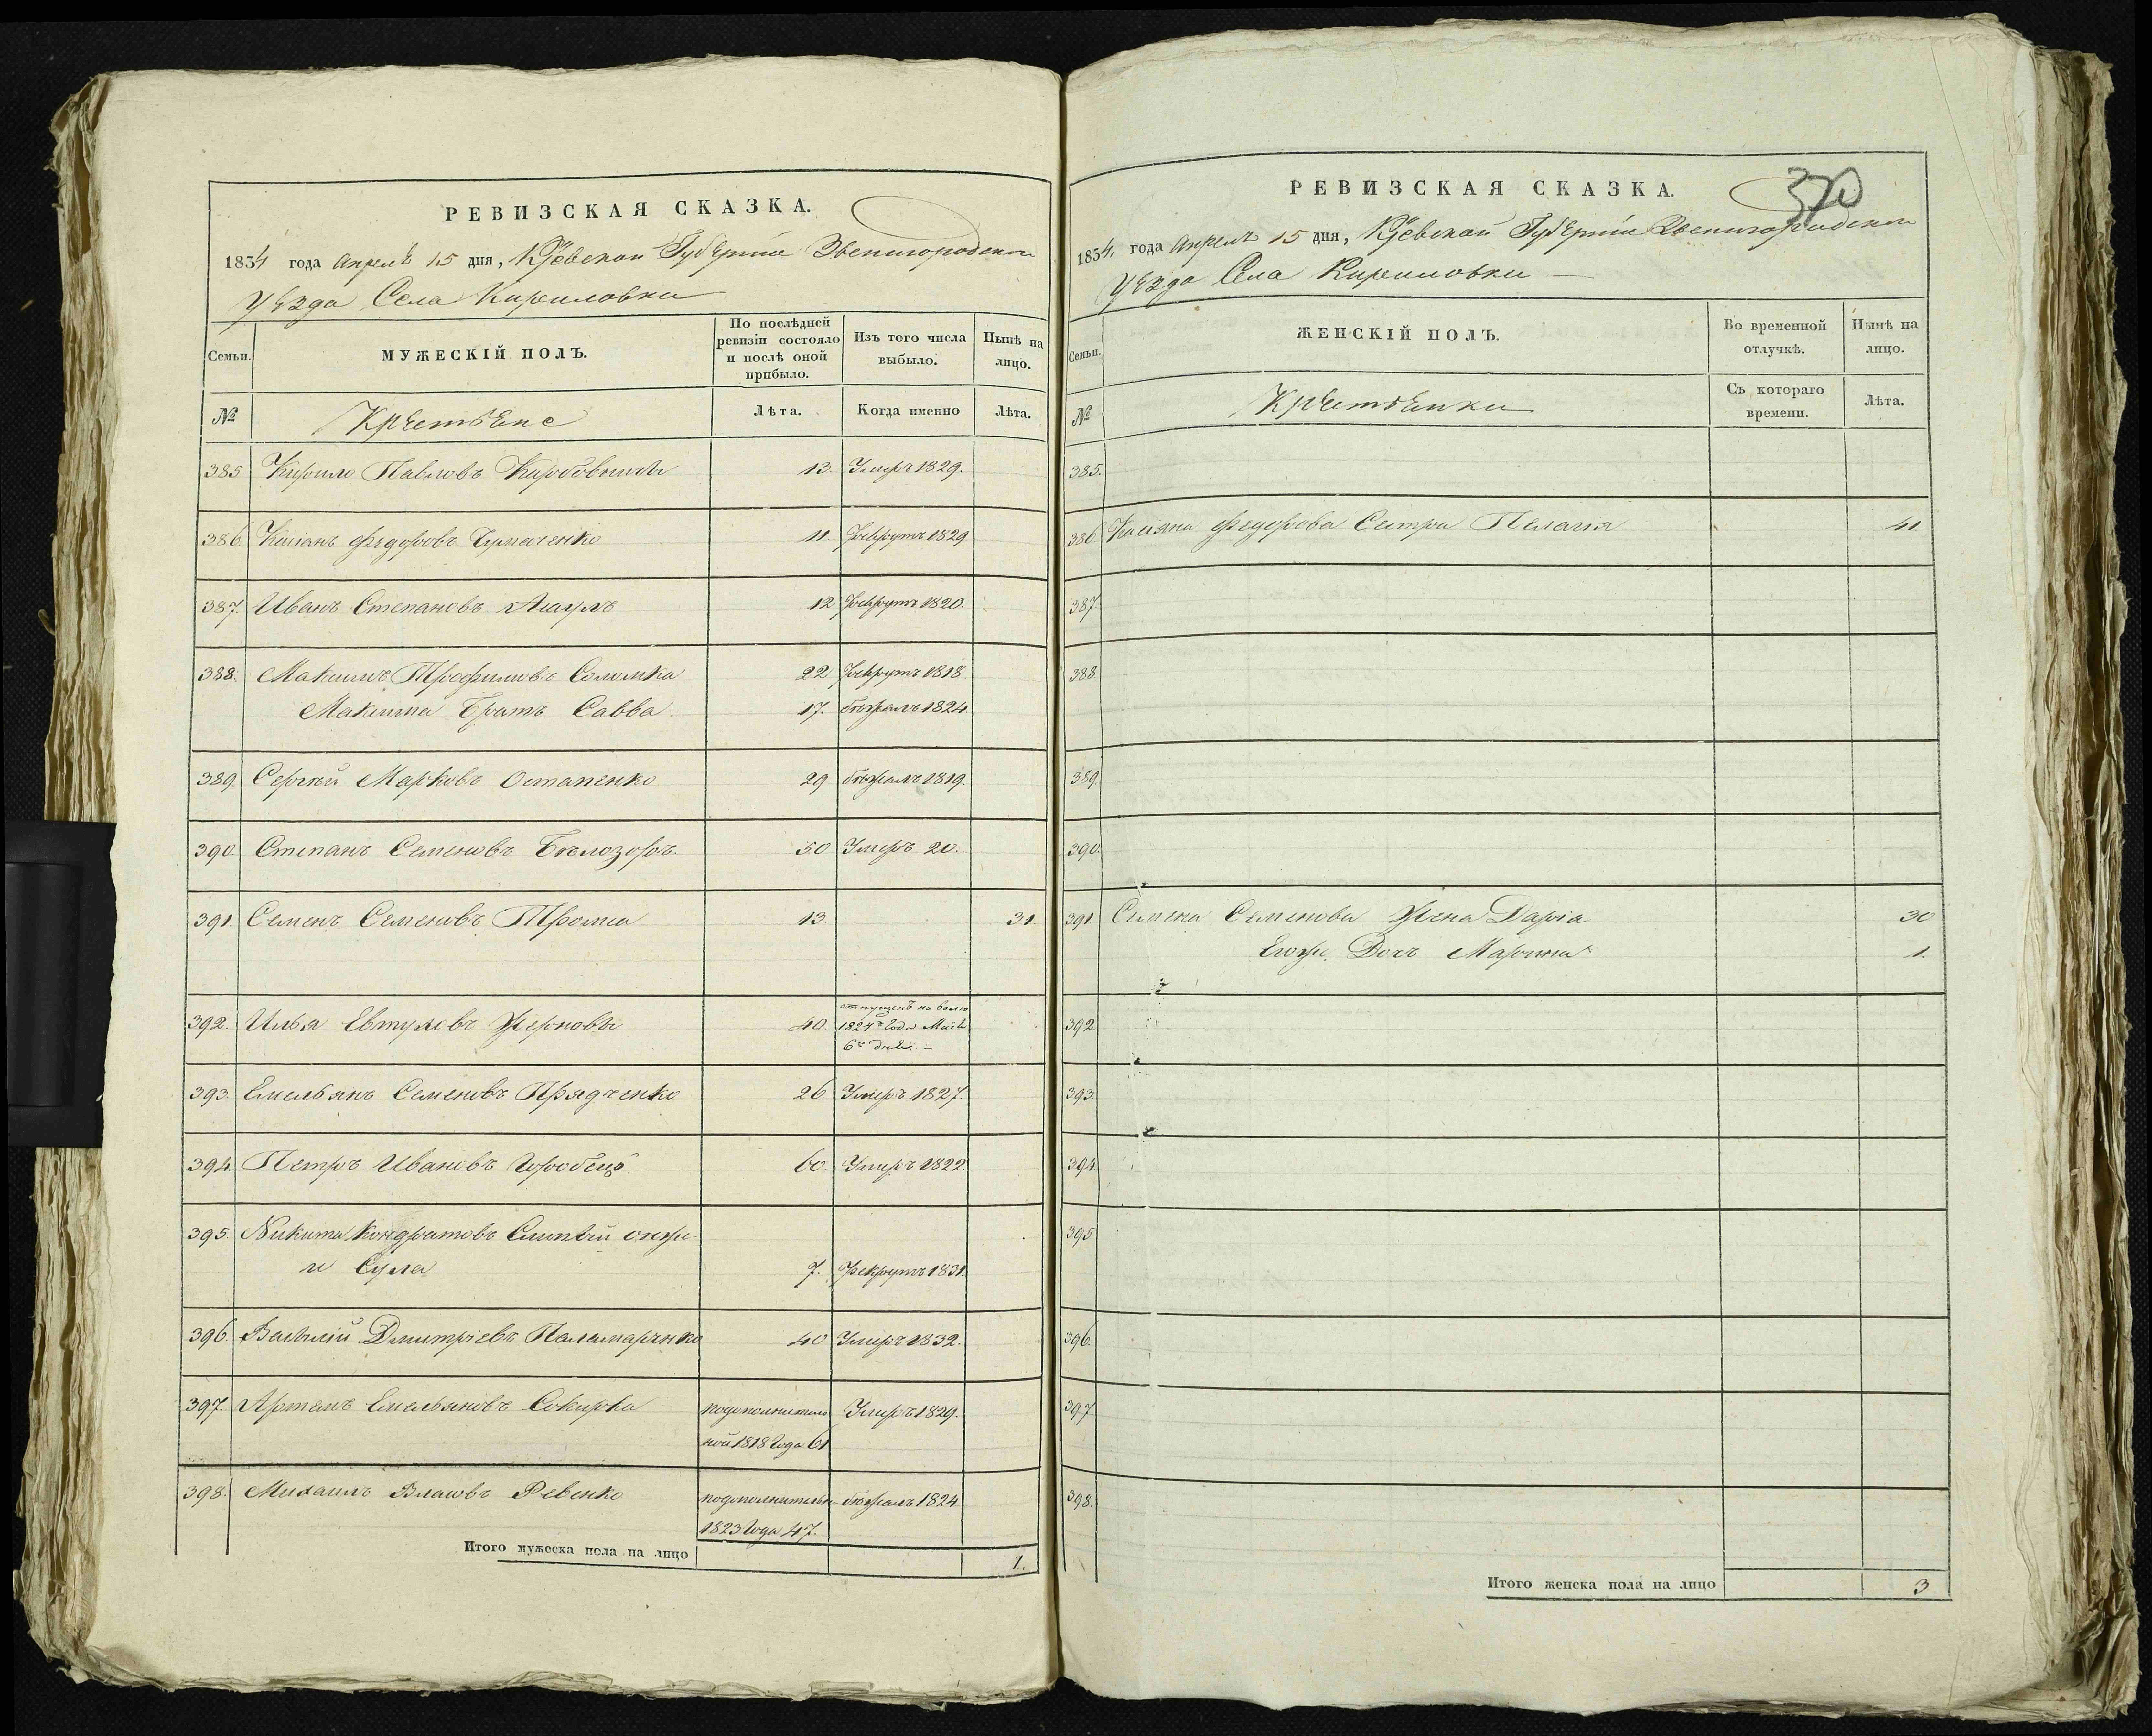 РЕВИЗСКАЯ СКАЗКА.
1834 года Апрелѣ 15 дня, Кіевской Губерніи Звенигородскаго
Уѣзда Села Кириловки
Семьи.
МУЖЕСКІЙ ПОЛЪ.
По послѣдней ревизіи состояло и послѣ оной прибыло.
Изъ того числа выбыло.
Нынѣ на лицо.
№
Крестьяне
Лѣта.
Когда именно
Лѣта.
385 Кирило Павловъ 13. Умеръ 1829.
386. Касіянъ Федоровъ 11. Рекрутъ 1829
387. Иванъ Степановъ 12 Рекрутъ 1820.
388. Максимъ Трофимовъ Соломка 22 Рекрутъ 1818.
Максима Братъ Савва 17. бѣжалъ 1824
389. Сергѣй Марковъ Остапенко 29 бѣжалъ 1819.
390 Степанъ Семеновъ Бѣлозоръ. 50 Умеръ 20.
391. Семенъ Семеновъ 13. 31.
392. Илья 40 отпущенъ на волю
1824го Года Маія
6го дня. —
393. Емельянъ Семеновъ Прядченко 26 Умеръ 1827.
394. Петръ Ивановъ Горобецъ 60 Умеръ 1822
395. Никита Кондратовъ Слипый онже
и Сула 7. Рекрутъ 1831.
396. Василій Дмитріевъ Паламарчнко 40 Умеръ 1832.
397. Артемъ Емельяновъ Сокирка подополнитель Умеръ 1829.
ной 1818 Года 61
398. Михаилъ Власовъ Ревенко подополнительн бѣжалъ 1824
1823 Года 47.
Итого мужеска пола на лицо 1.
РЕВИЗСКАЯ СКАЗКА.
370
1834. года Апрелѣ 15 дня, Кіевской Губерніи Звенигородскаго
Уѣзда Села Кириловки —
Семьи.
ЖЕНСКІЙ ПОЛЪ.
Во временной отлучкѣ.
Нынѣ на лицо.
№
Крестьянки
Съ котораго времени.
Лѣта.
385.
386 Касіяна Федорова Сестра Пелагія 41.
387.
388
389.
390.
391. Семена Семенова Жена Дарія 30
Егоже Дочь Марина 1.
392.
393.
394
395
396.
397
398.
Итого женска пола на лицо 3